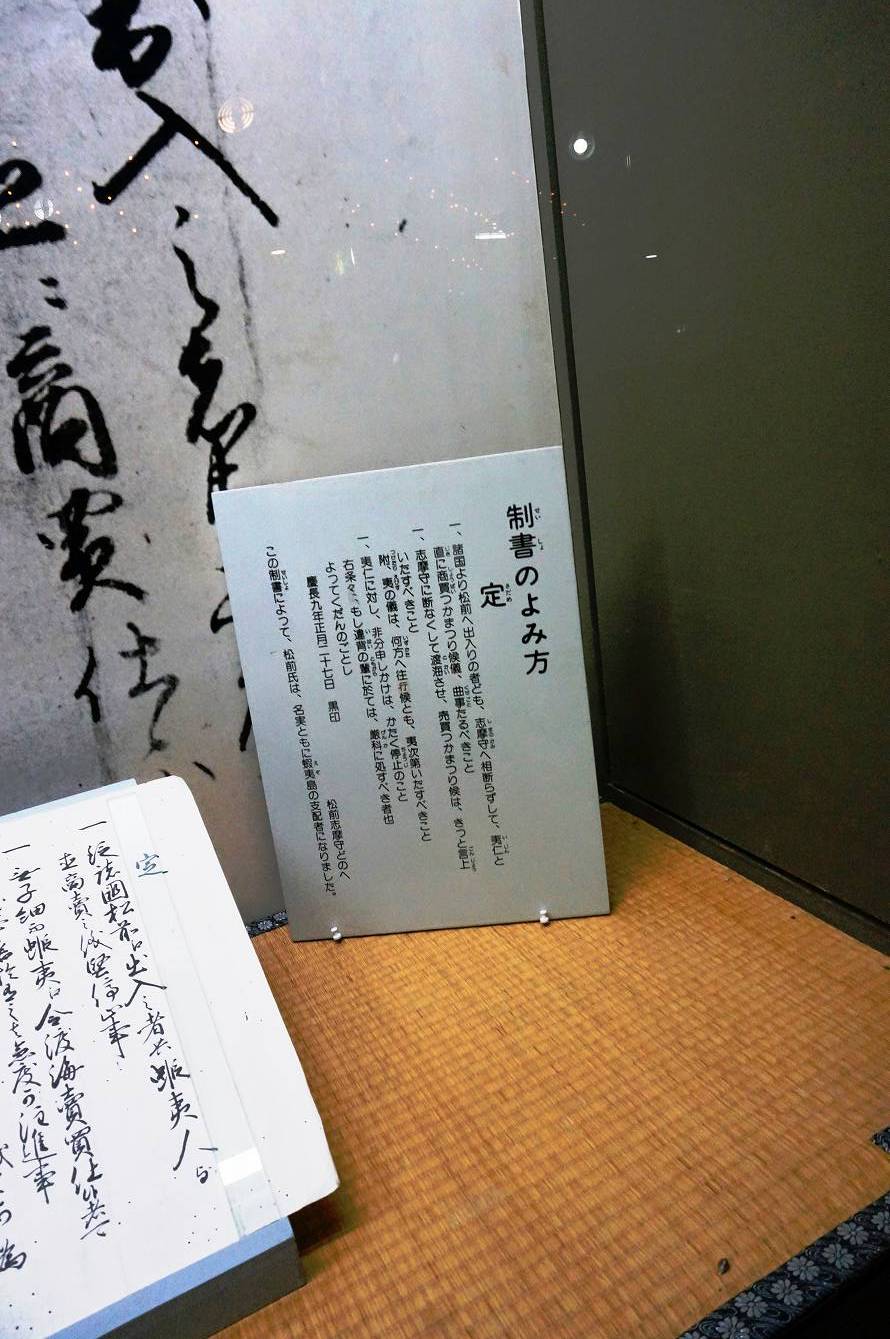 制書のよみ方
定
一、諸国より松前へ出入りの者ども、志摩守へ相断らずして、夷仁と
直に商買つかまつり候儀、曲事たるべきこと
一、志摩守に断なくして渡海させ、売買つかまつり候は、きっと言上
いたすべきこと
附、夷の儀は、何方へ往行候とも、夷次第いたすべきこと
一、夷仁に対し、非分申しかけは、かたく停止のこと
右条々、もし違背の輩に於ては、厳科に処すべき者也
よってくだんのごとし
慶長九年正月二十七日 黒印
松前志摩守どのへ
この制書によって、松前氏は、名実ともに蝦夷島の支配者になりました。
出入之者
商売仕
定
一 従諸國松前口出入之者共蝦夷人与
直商賣之儀堅停止事
一 無子細而蝦夷口令渡海賣買仕候者